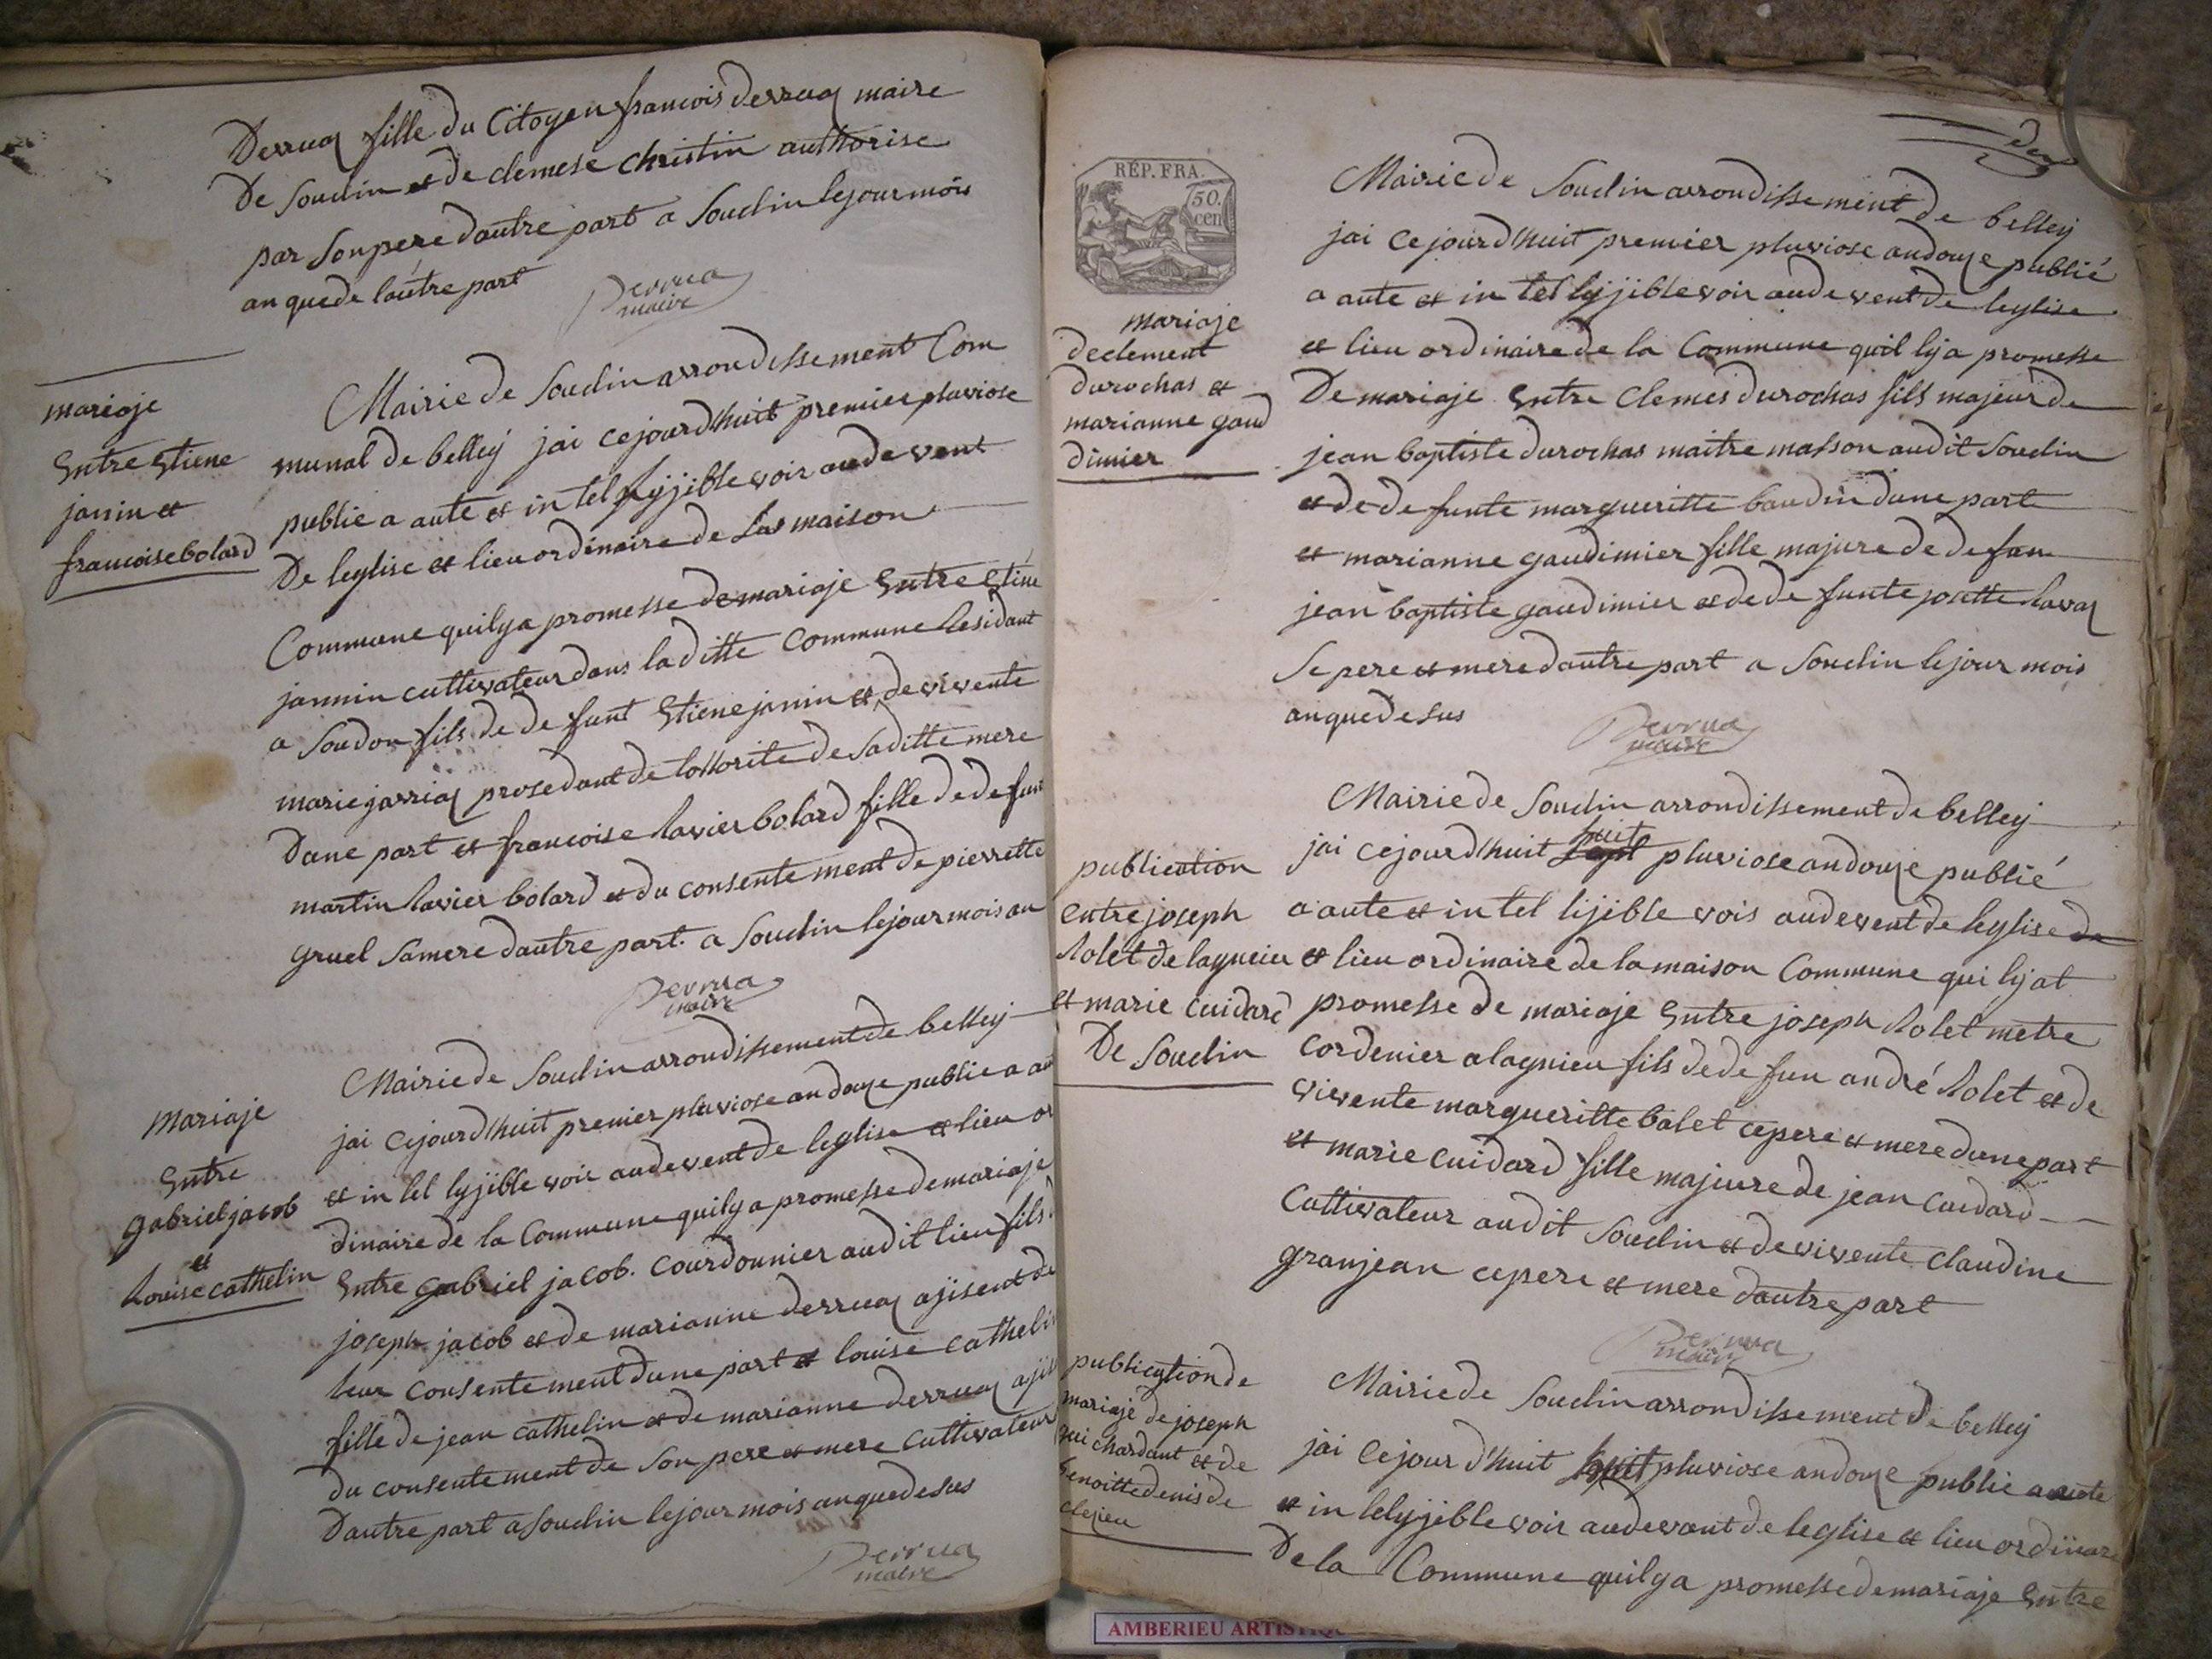 Derruaz fille du Citoyen francois derruaz maire
De Soudin et de clemese christin authorise
par Son pere dautre part a Soudin le jour mois
an que de lautre part
Derrua
maire
mariaje
Entre Etiene
janin et
francoise bolard
Mairie de Soudin arrondissement Com
munal de belley jai ce jourdhuit premier pluviose
publie a aute et in tel lyjible voir au de vent
De leglise et lieu ordinaire de la maison
Commune quil y a promesse de mariaje Entre Etine
jannin cultivateur dans la ditte Commune Residant
a Soudon fils de de funt Etiene janin et de vivente
marie jarriaz prosedant de lottorite de sa ditte mere
Dune part et francoise Ravier bolard fille de defunt
martin Ravier bolard et du consente ment de pierrette
gruel Sa mere dautre part. a Soudin le jour mois an
Derrua
maire
Mariaje
Entre
gabriel jacob
et
Louise cathelin
Mairie de Soudin arrondissement de belley
jai ce jourdhuit premier pluviose an douze publie a au
et in tel lyjible voir au de vent de leglise et lieu or
dinaire de la Commune quil y a promesse de mariaje
Entre gabriel jacob. Courdounier au dit lieu fils d
joseph jacob et de marianne derruaz ajisent de
leur consente ment dune part et louise cathelin
fille de jean cathelin et de marianne derruaz ajis
du consente ment de Son pere et mere cultivateur
Dautre part a Soudin le jour mois an que de sus
Derrua
maire
REP. FRA.
50.
cen
mariaje
de clement
durochas et
marianne gaud
dimier
Mairie de Soudin arrondissement de belley
jai ce jourdhuit premier pluviose an douze publié
a aute et in tel lyjible voir au de vent de leglise
et lieu ordinaire de la Commune quil ly a promesse
De mariaje Entre Clemes durochas fils majeur de
jean baptiste durochas maitre masson au dit Soudin
et de de funte margueritte baudin dune part
et marianne gaudimier fille majure de de fun
jean baptiste gaudimier et de de funte josette Ravaz
Se pere et mere dautre part a Soudin le jour mois
an que de sus
Derrua
maire
publication
entre joseph
Rolet de lagnieu
et marie cuidard
De Soudin
Mairie de Soudin arrondissement de belley
huit
jai ce jourdhuit sept pluviose an douze publié
a aute et in tel lijible vois au de vent de leglise de
et lieu ordinaire de la maison Commune qui ly at
promesse de mariaje Entre joseph Rolet metre
cordenier a lagnieu fils de de fun andré Rolet et de
vivente margueritte balet ce pere et mere dune part
et marie cuidard fille majeure de jean cuidard
Cultivateur au dit Soudin et de vivente claudine
granjean ce pere et mere dautre part
Derrua
maire
publication de
mariaje de joseph
gui chardant et de
benoitte denis de
clezieu
Mairie de Soudin arrondissement de belley
jai ce jour d'huit huit pluviose an douze publie a aute
et in telyjible voir au devant de leglise et lieu ordinare
De la Commune quil y a promesse de mariaje Entre
AMBERIEU ARTISTIQU